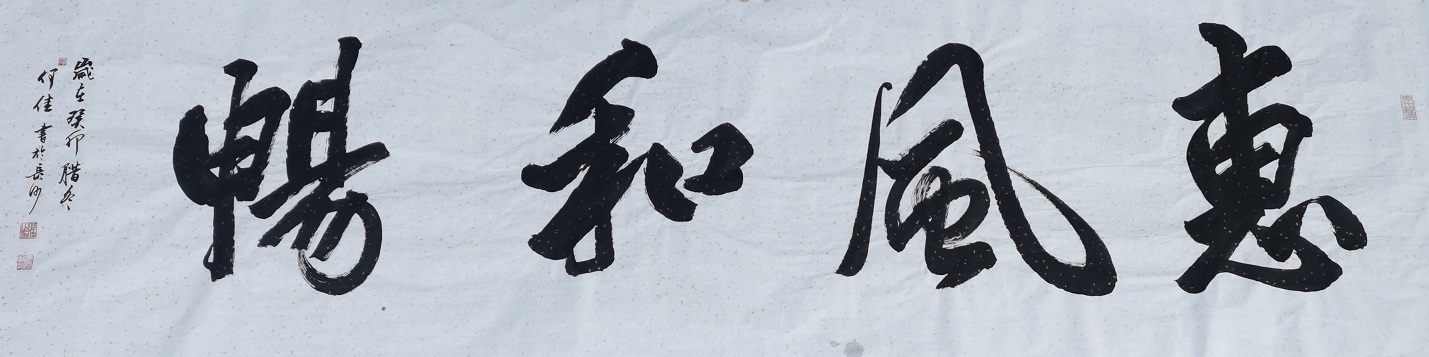 惠風和暢
歲在癸卯腊冬
何佳書於長沙